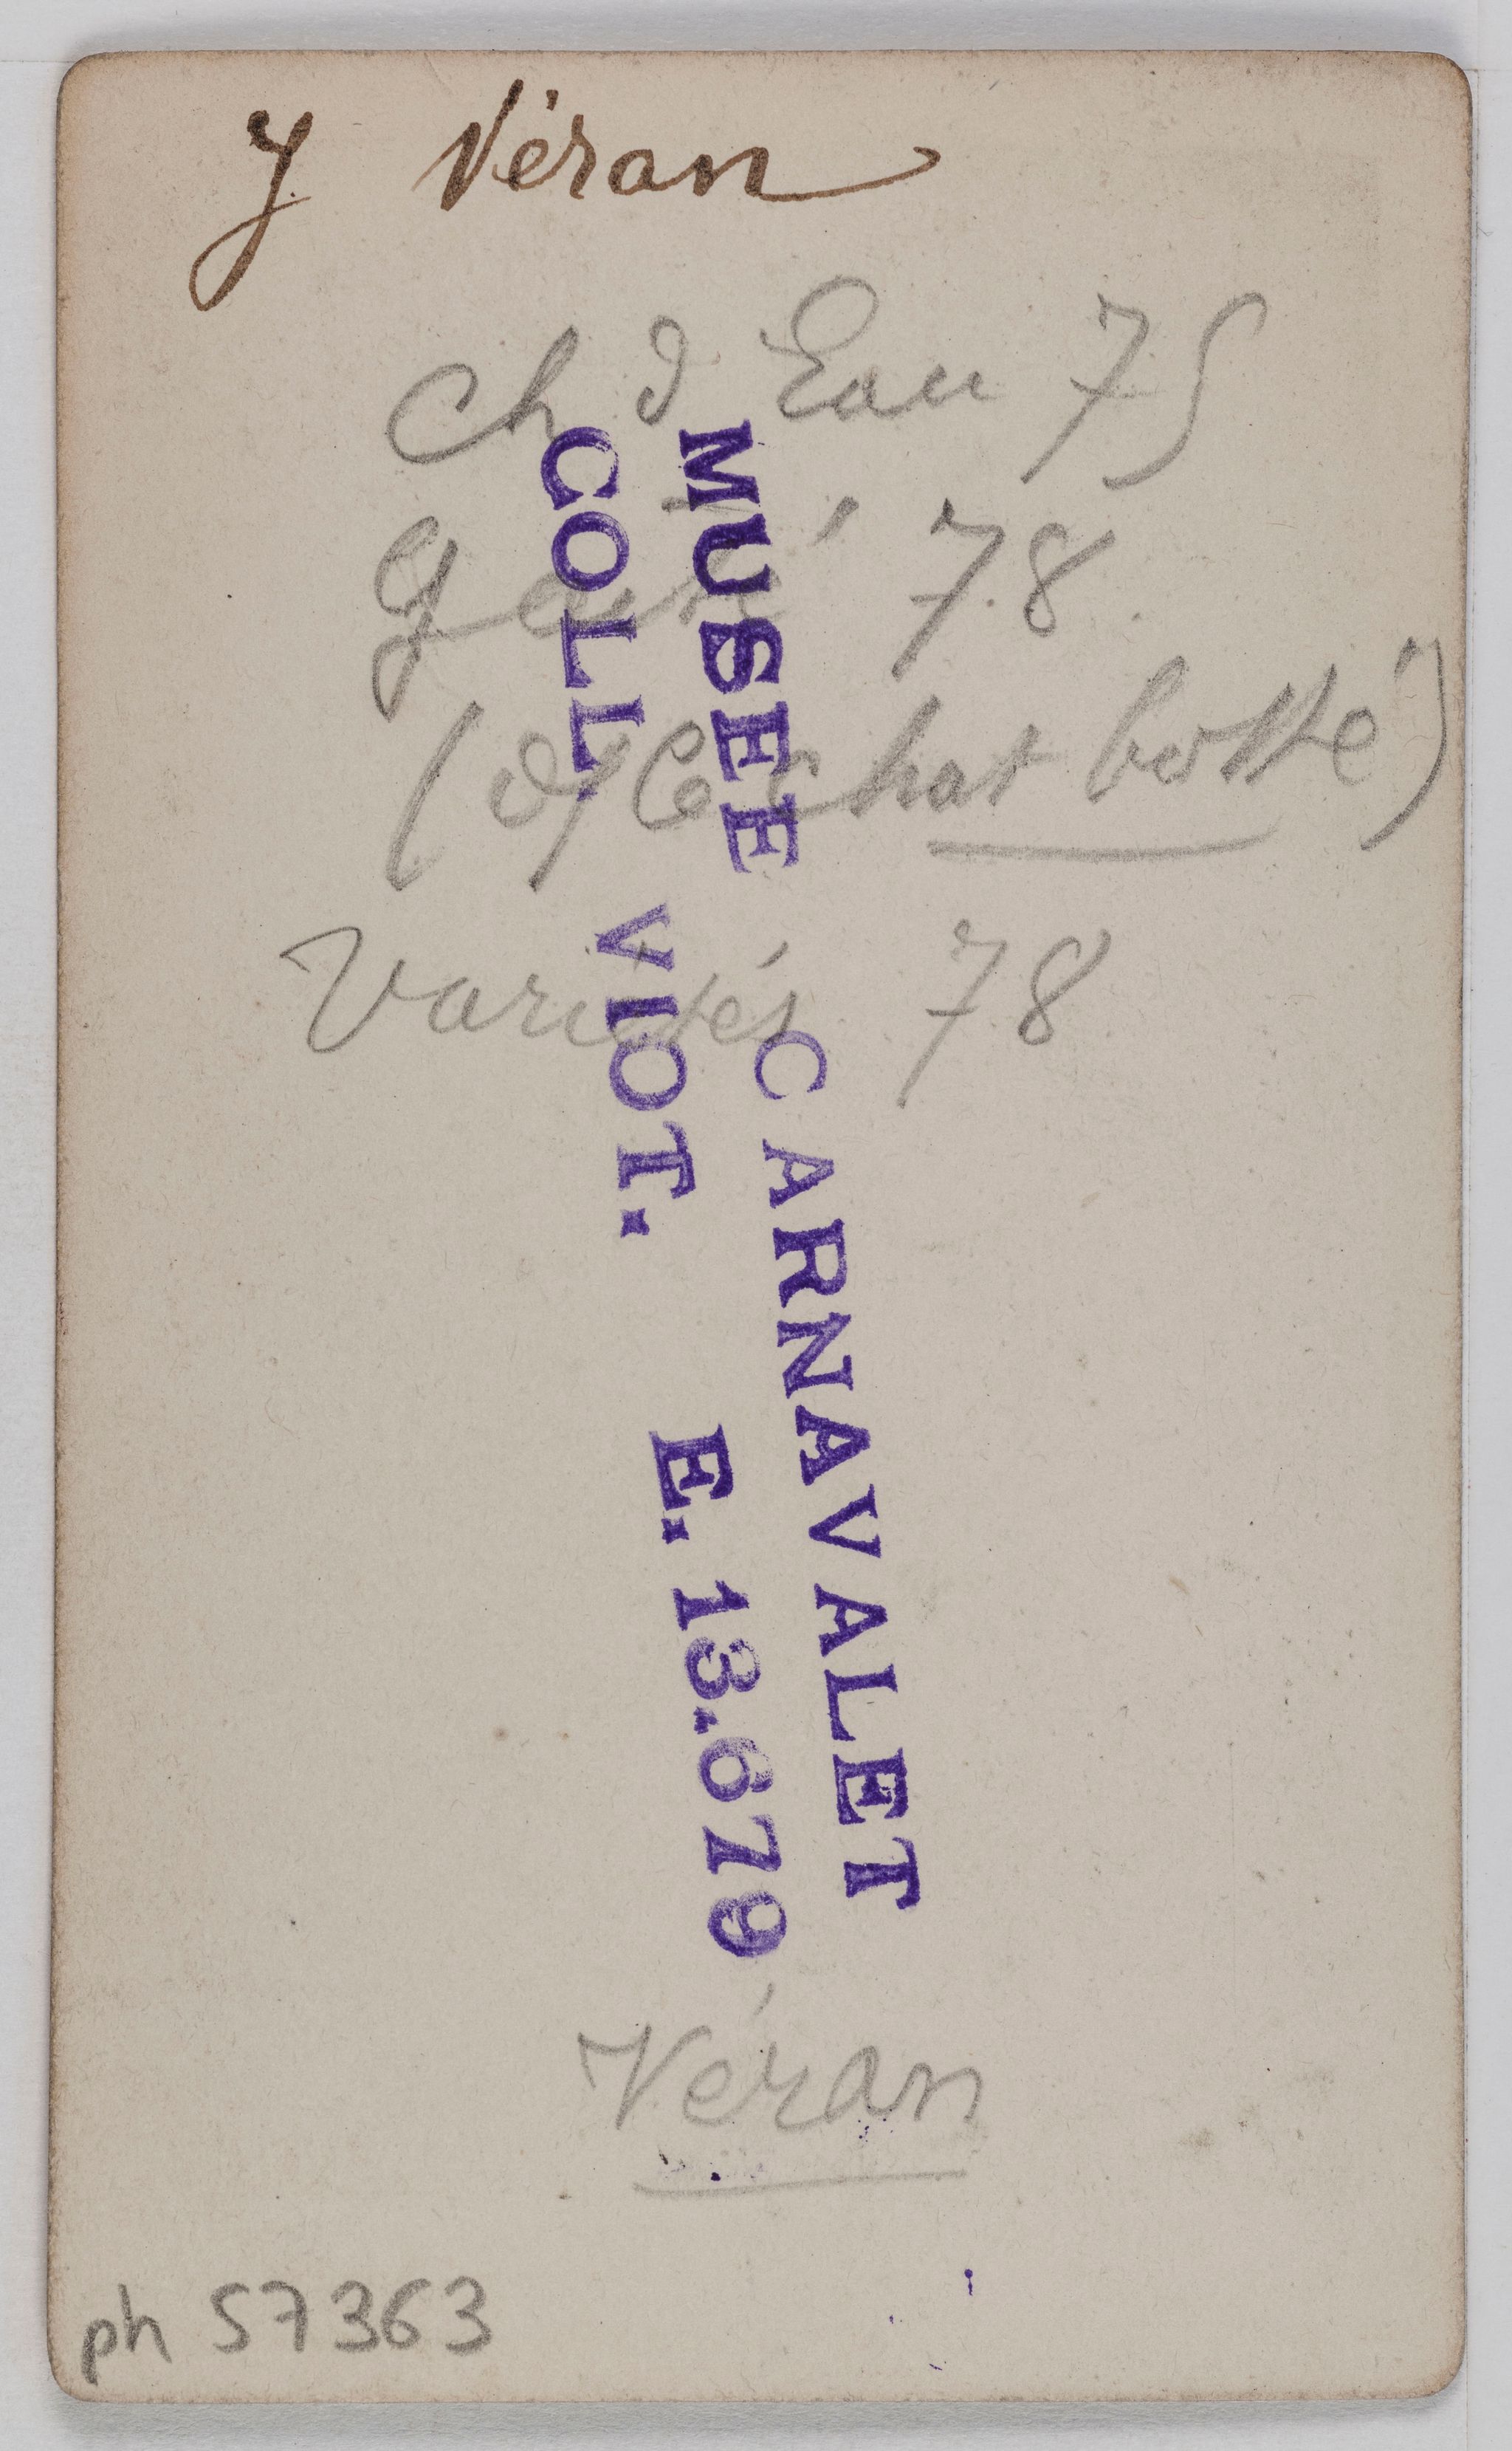 J Véran
Ch d Eau 75
Gaité 78
(ds le chat botté)
Variétés 78
MUSEE CARNAVALET
COLL. VIOT. E. 13.679
Véran
ph 57363